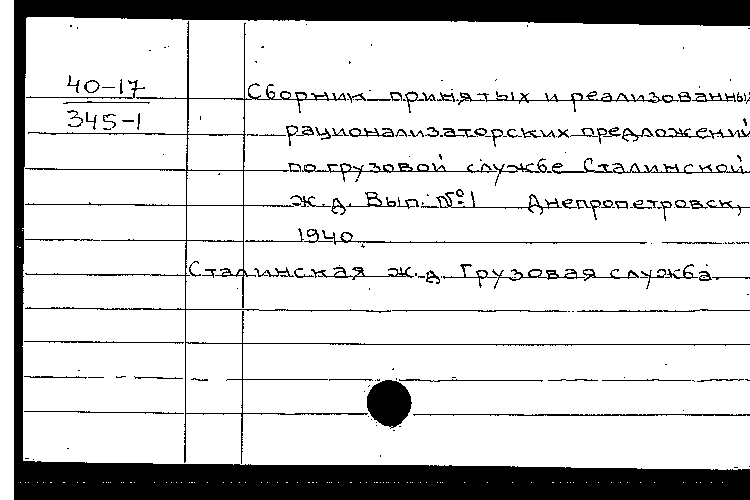 40-17
345-1
Сборник принятых и реализованных
рационализаторских предложений
по грузовой службе Сталинской
ж.д. Вып. №1 Днепропетровск,
1940.
Сталинская ж.д. Грузовая служба.